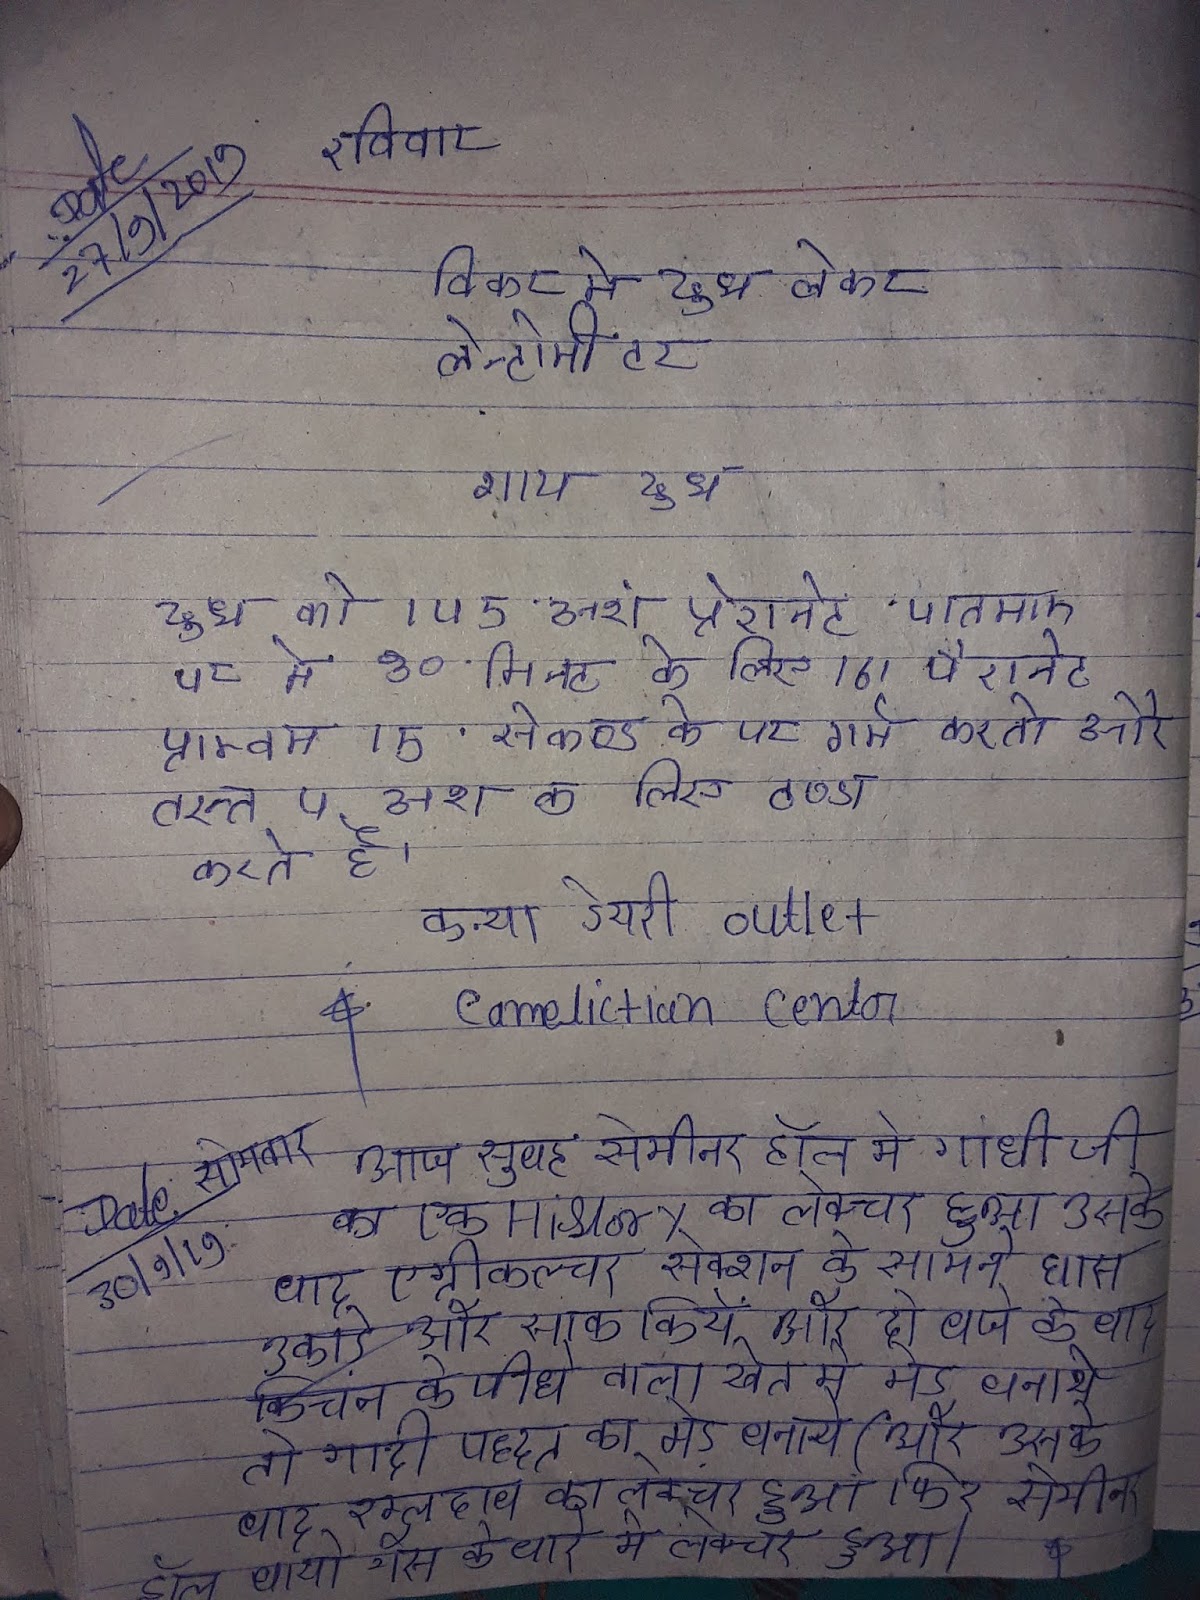 Date
27/9/2019
रविवार
विकर मे दुध लेकर
लेन्टोमीटर
गाय दुध
दुध को 145 अशं प्रेरानेट पातमाम
पर मे 30 मिनट के लिए 161 पैरानेट
प्राम्वम 15 सेकण्ड के पर गर्म करतो और
तरन्त 4 अश क लिए ठण्डा
करते है।
कन्या डेयरी outlet
Comelictian Centor
Date सोमवार
30/9/19
आज सुवह सेमीनर हॉल मे गांधी जी
का एक History का लेक्चर हुआ उसके
वाद एग्रीकल्चर सेक्शन के सामने घास
उकाडे और साक किये और दो वजे के वाद
किचन के पीछे वाला खेत मे मेड वनाये
तो गादी पद्दत का मेड वनाये और उसके
वाद का लेक्चर हुआ फिर सेमीनर
हॉल वायो गैस के वारे मे लेक्चर हुआ।